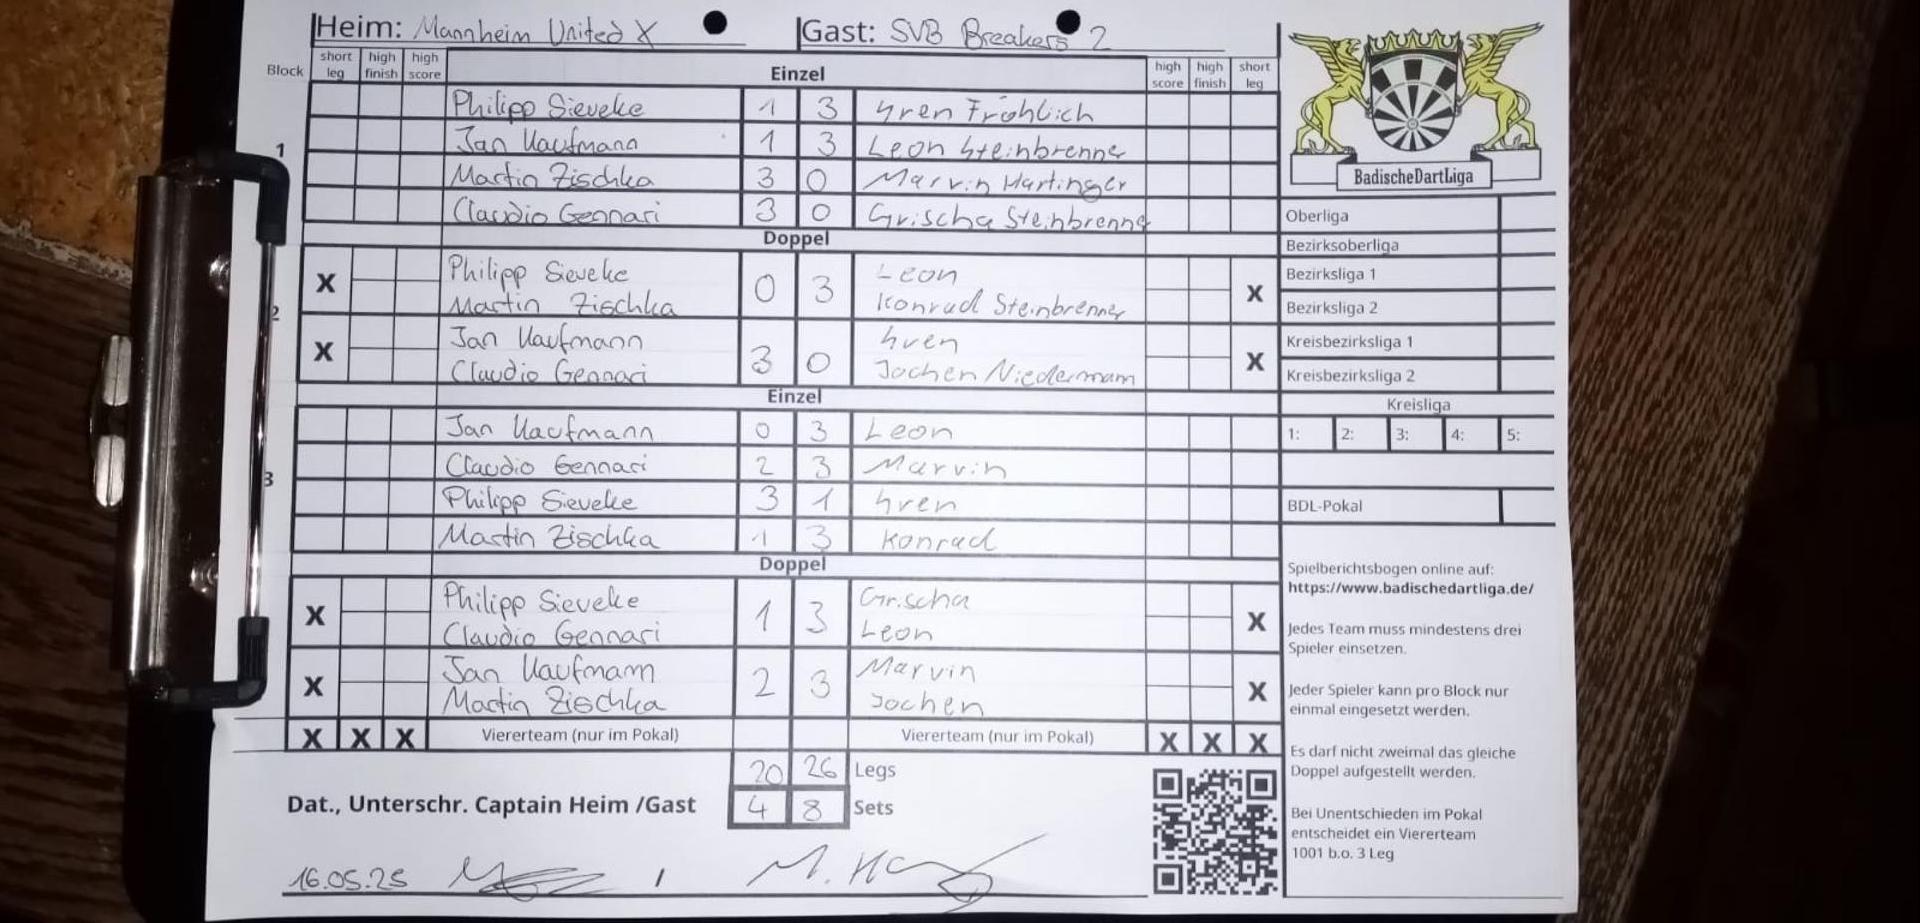 Heim: Mannheim United X Gast: SVB Breakers 2
Block short leg high finish high score Einzel high score high finish short leg
1
Philipp Sieveke 1 3 Fröhlich
Jan Kaufmann 1 3 Leon Steinbrenner
Martin Zischka 3 0 Marvin Hartinger
Claudio Gennari 3 0 Grischa Steinbrenne
Doppel
2
X Philipp Sieveke 0 3 Leon X
Martin Zischka Konrad Steinbrenner
X Jan Kaufmann 3 0 X
Claudio Gennari Jochen Niedermann
Einzel
3
Jan Kaufmann 0 3 Leon
Claudio Gennari 2 3 Marvin
Philipp Sieveke 3 1
Martin Zischka 1 3 Konrad
Doppel
X Philipp Sieveke 1 3 Grischa X
Claudio Gennari Leon
X Jan Kaufmann 2 3 Marvin X
Martin Zischka Jochen
X X X Viererteam (nur im Pokal) Viererteam (nur im Pokal) X X X
20 26 Legs
Dat., Unterschr. Captain Heim /Gast 4 8 Sets
16.05.25 /
BadischeDartLiga
Oberliga
Bezirksoberliga
Bezirksliga 1
Bezirksliga 2
Kreisbezirksliga 1
Kreisbezirksliga 2
Kreisliga
1: 2: 3: 4: 5:
BDL-Pokal
Spielberichtsbogen online auf:
https://www.badischedartliga.de/
Jedes Team muss mindestens drei
Spieler einsetzen.
Jeder Spieler kann pro Block nur
einmal eingesetzt werden.
Es darf nicht zweimal das gleiche
Doppel aufgestellt werden.
Bei Unentschieden im Pokal
entscheidet ein Viererteam
1001 b.o. 3 Leg